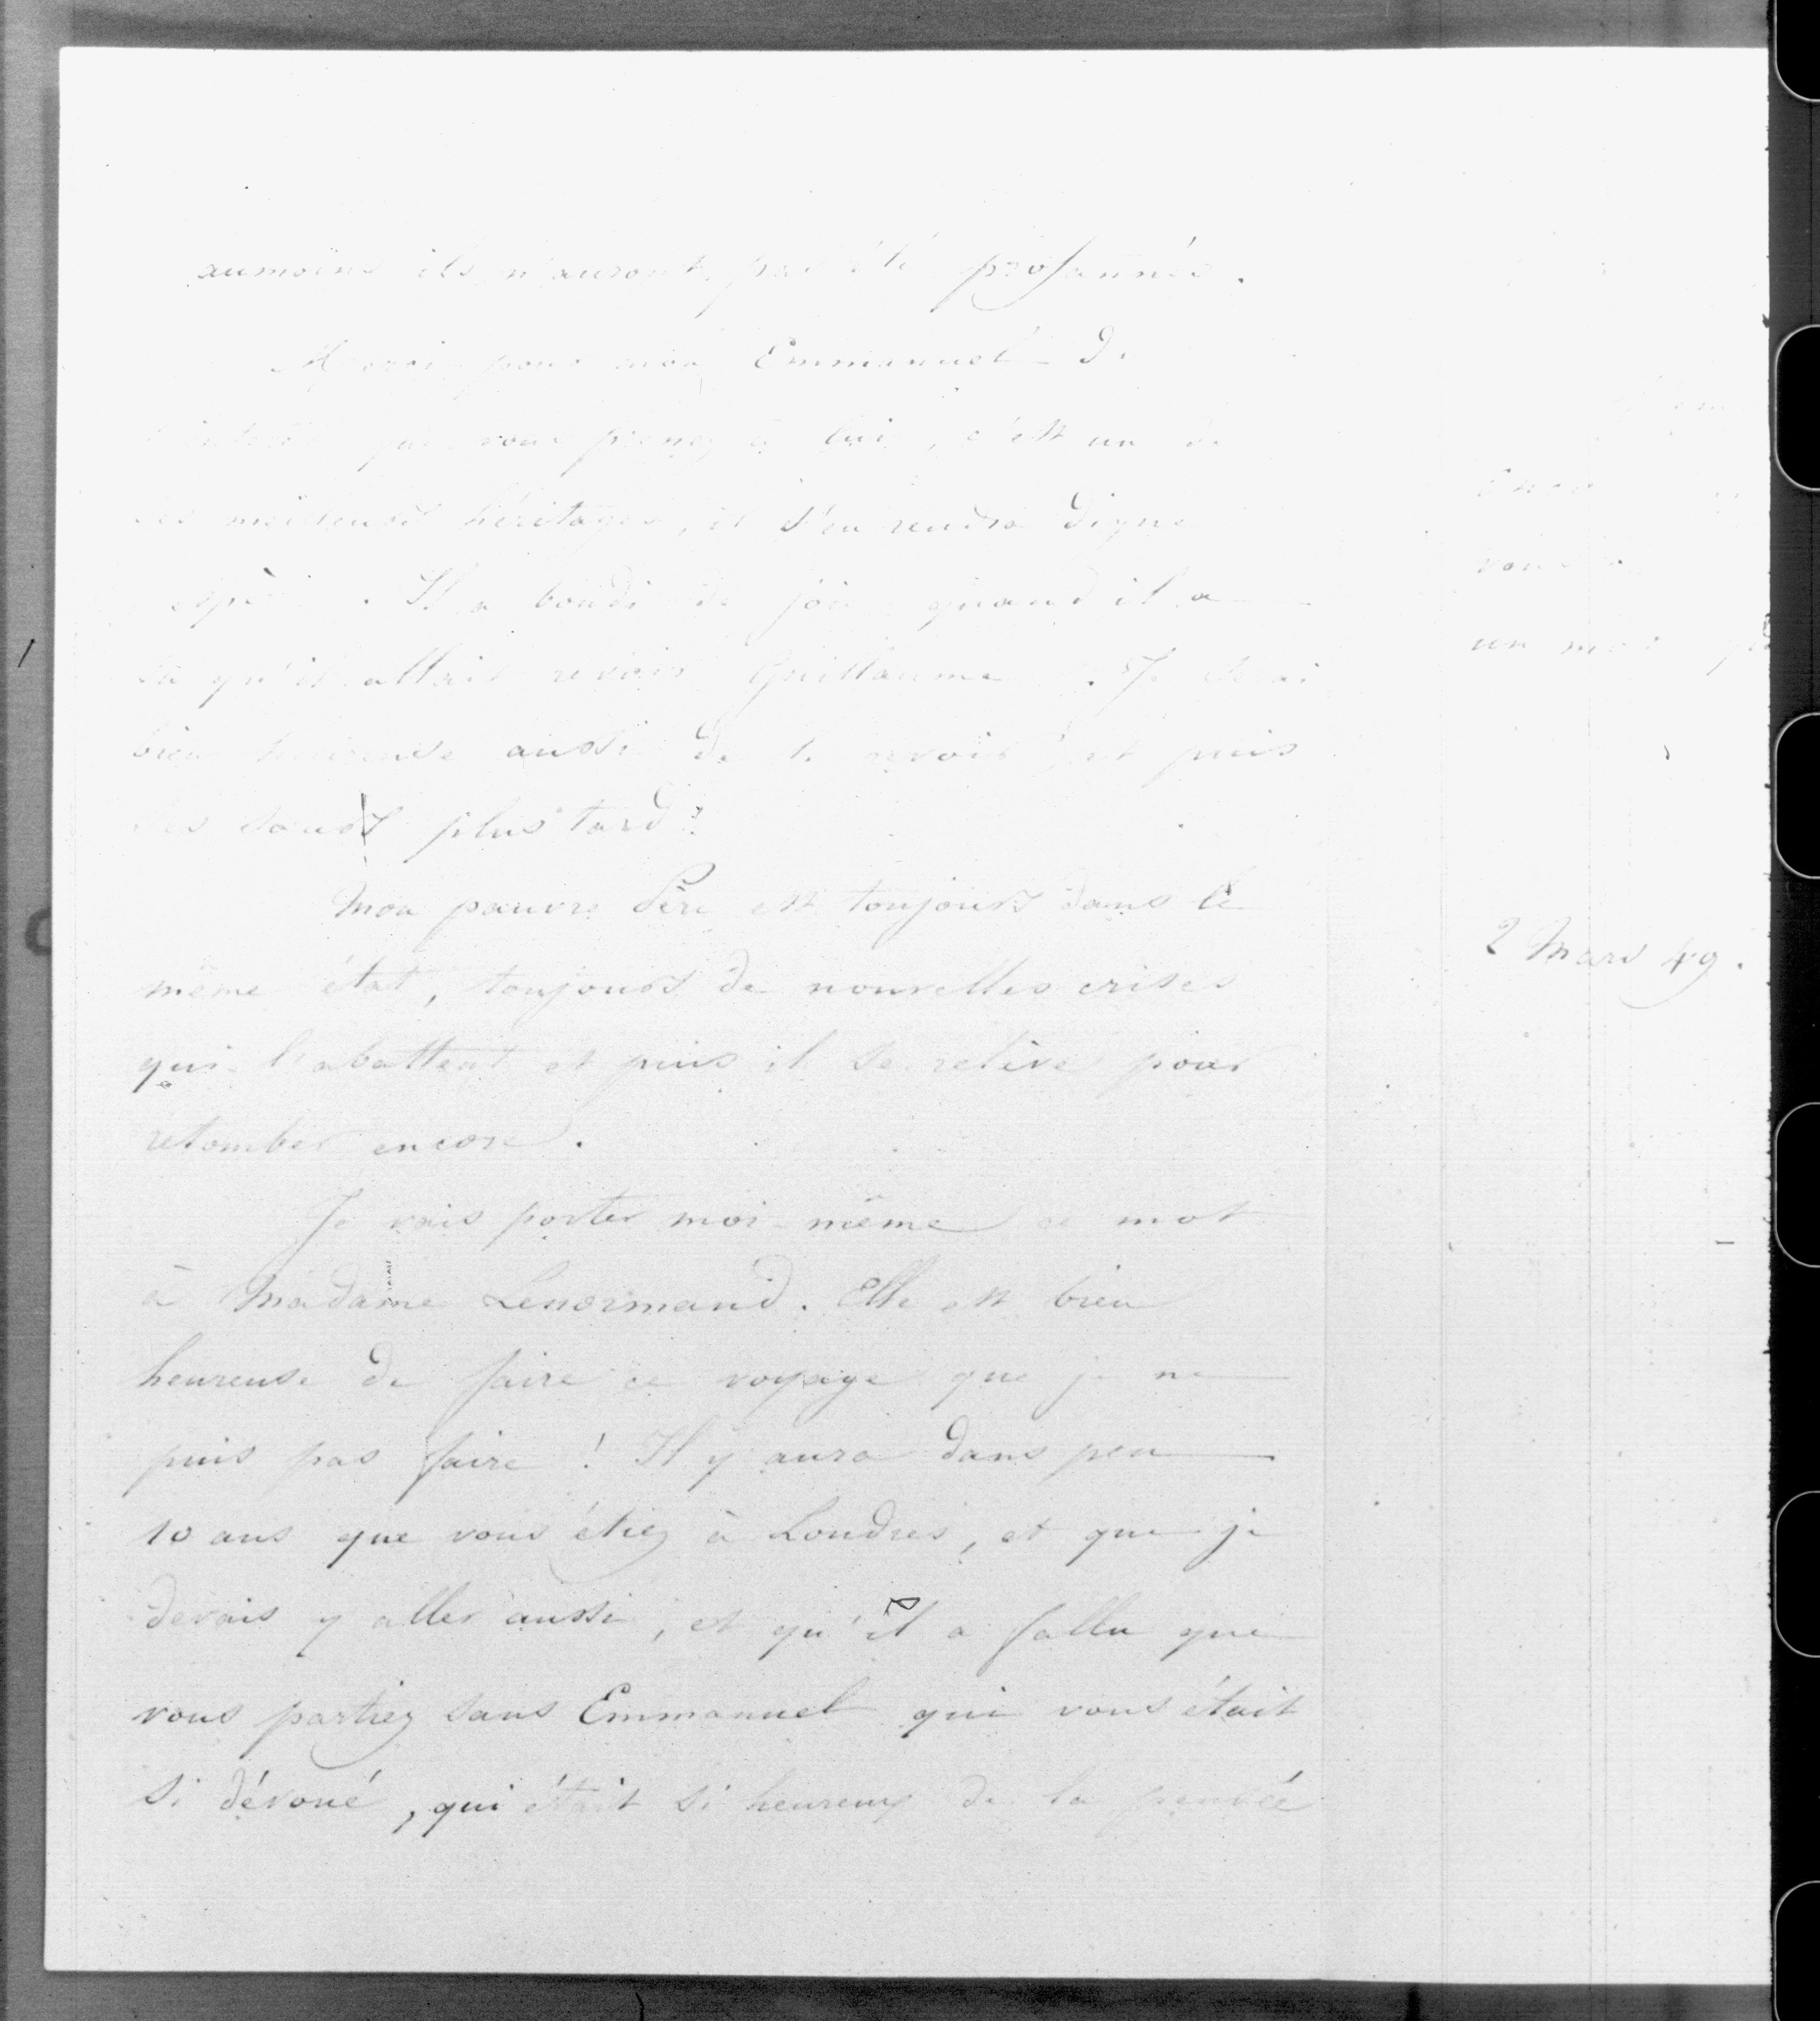 aumoins ils n'auront pas été profannés.
Merci pour mon Emmanuel de
que vous prenez à lui, c'est un de
ses meilleurs héritages, il s'en rendra digne
Il a bondi de joie quand il a
su qu'il allait revoir Guillaume. Je serai
bien heureuse aussi de le revoir, et puis
ses sœurs plus tard?
Mon pauvre Père est toujours dans le
même état, toujours de nouvelles crises
qui l'abattent et puis il se relève pour
retomber encore.
Je vais porter moi-même ce mot
à Madame Lenormand. Elle est bien
heureuse de faire ce voyage que je ne
puis pas faire ! Il y aura dans peu
10 ans que vous étiez à Londres, et que je
devais y aller aussi, et qu'il a fallu que
vous partiez sans Emmanuel qui vous était
si dévoué, qui était si heureux de la pensée
vous
un mot
2 Mars 49.